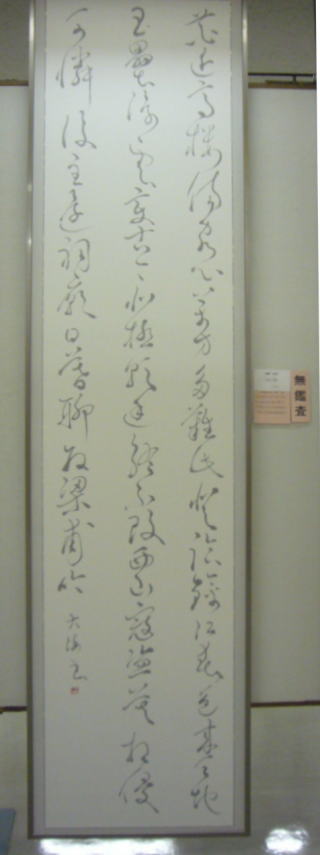 花近高樓傷客心萬方多難此登臨錦江春色来天地
玉壘浮雲変古今北極朝廷終不改西山寇盗莫相侵
可憐後主還祠廟日暮聊為梁甫吟 大海書
無鑑査